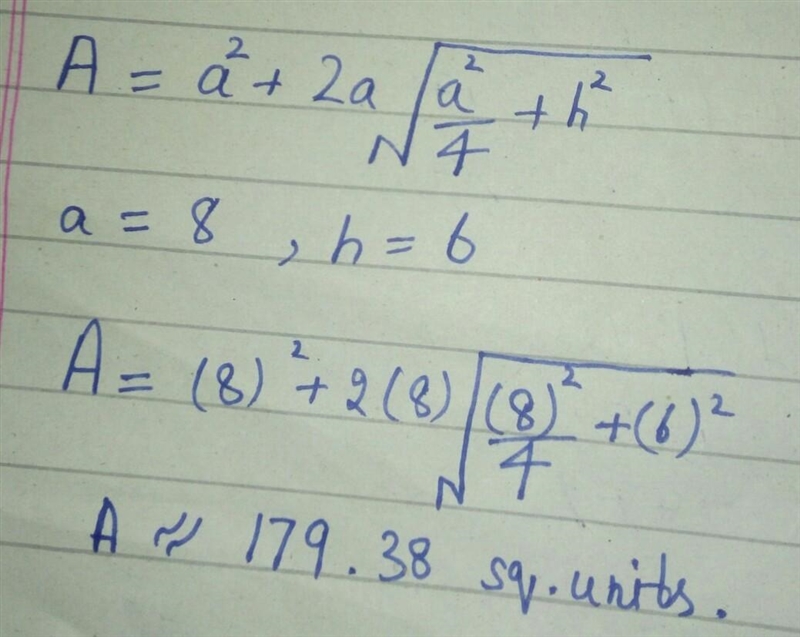 A = a² + 2a √(a²/4 + h²)
a = 8 , h = 6
A = (8)² + 2(8) √((8)²/4 + (6)²)
A ≈ 179.38 sq. units.